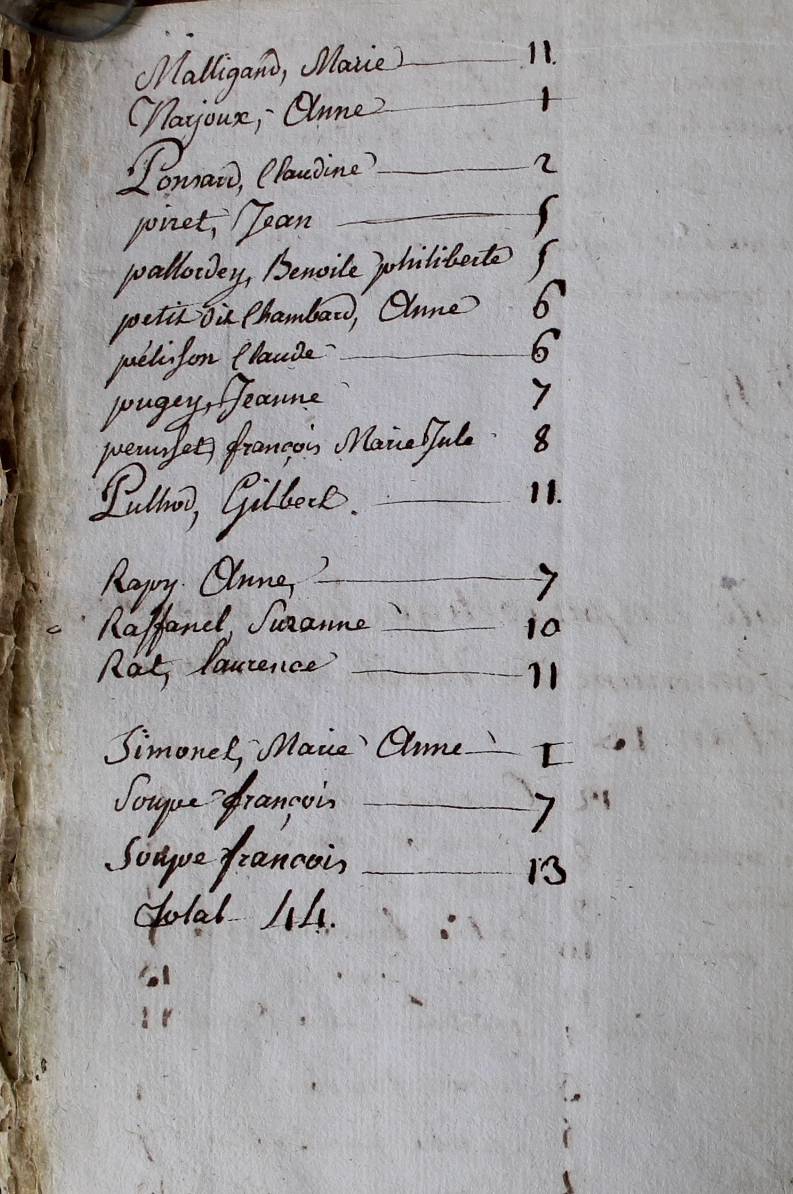 Malligand, Marie 11.
Narjoux, Anne 1
Ponsard, Claudine 2
piret, Jean 5
pallordey, Benoite philiberte 5
petit dit Chambard, Anne 6
pélisson Claude 6
pugey, Jeanne 7
perusset, françois Marie Jule 8
Pulliod, Gilbert. 11.
Rapy. Anne, 7
Raffanel, Suzanne 10
Rat, laurence 11
Simonet, Marie Anne 1
Soupe françois 7
Soupe françois 13
Total 44.